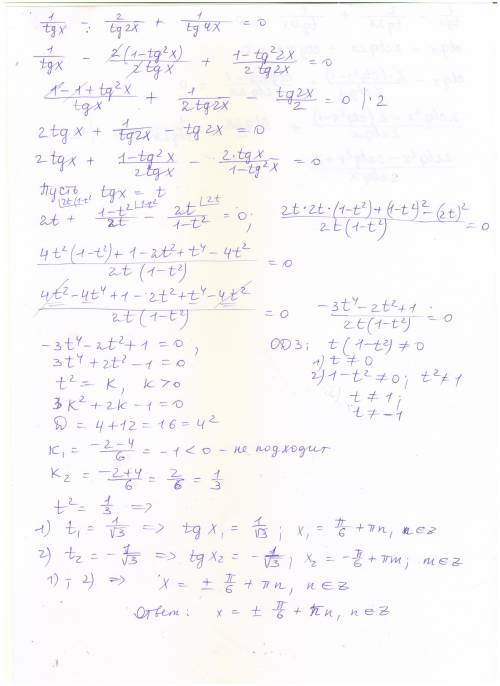 1/tgx - 2/tg2x + 1/tg4x = 0
1/tgx - 2(1-tg²x)/2tgx + 1-tg²2x/2tg2x = 0
1-1+tg²x/tgx + 1/2tg2x - tg2x/2 = 0 |·2
2tgx + 1/tg2x - tg2x = 0
2tgx + 1-tg²x/2tgx - 2·tgx/1-tg²x = 0
Пусть tgx = t
2t + 1-t²/2t - 2t/1-t² = 0; 2t·2t·(1-t²)+(1-t²)²-(2t)²/2t(1-t²) = 0
4t²(1-t²)+1-2t²+t⁴-4t²/2t(1-t²) = 0
4t²-4t⁴+1-2t²+t⁴-4t²/2t(1-t²) = 0 -3t⁴-2t²+1/2t(1-t²) = 0
-3t⁴-2t²+1=0, ОДЗ: t(1-t²)≠0
3t⁴+2t²-1=0 1) t≠0
t²=k, k>0 2) 1-t²≠0; t²≠1
3k²+2k-1=0 t≠1;
D=4+12=16=4² t≠-1
k₁=-2-4/6=-1<0 - не подходит
k₂=-2+4/6=2/6=1/3
t²=1/3 =>
1) t₁=1/√3 => tgx₁=1/√3; x₁=π/6+πn, n∈Z
2) t₂=-1/√3 => tgx₂=-1/√3; x₂=-π/6+πm; m∈Z
1); 2) => x=±π/6+πn, n∈Z
Ответ: x=±π/6+πn, n∈Z